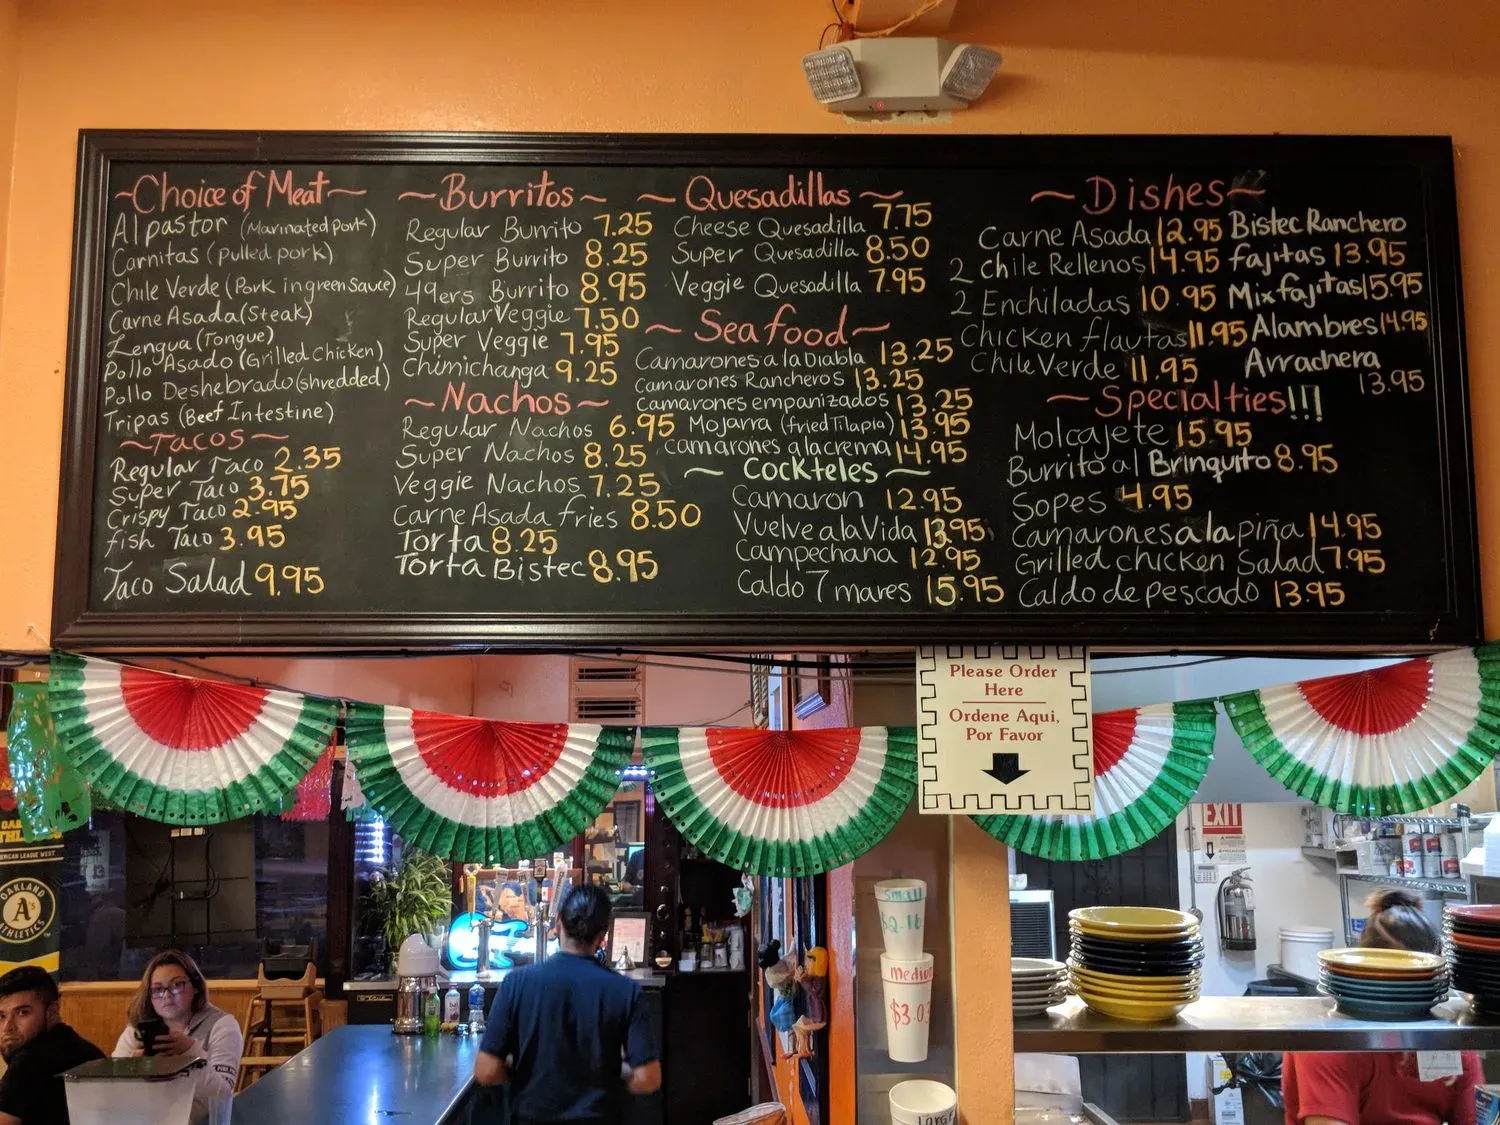 ~Choice of Meat~
Al pastor (Marinated pork)
Carnitas (pulled pork)
Chile Verde (Pork in green Sauce)
Carne Asada (Steak)
Lengua (Tongue)
Pollo Asado (Grilled Chicken)
Pollo Deshebrado (shredded)
Tripas (Beef Intestine)
~Tacos~
Regular Taco 2.35
Super Taco 3.75
Crispy Taco 2.95
fish Taco 3.95
Taco Salad 9.95
~Burritos~
Regular Burrito 7.25
Super Burrito 8.25
49ers Burrito 8.95
Regular Veggie 7.50
Super Veggie 7.95
Chimichanga 9.25
~Nachos~
Regular Nachos 6.95
Super Nachos 8.25
Veggie Nachos 7.25
Carne Asada fries 8.50
Torta 8.25
Torta Bistec 8.95
~Quesadillas~
Cheese Quesadilla 7.75
Super Quesadilla 8.50
Veggie Quesadilla 7.95
~Seafood~
Camarones a la Diabla 13.25
Camarones Rancheros 13.25
Camarones empanizados 13.25
Mojarra (fried Tilapia) 13.95
Camarones a la crema 14.95
~Cockteles~
Camaron 12.95
Vuelve a la Vida 13.95
Campechana 12.95
Caldo 7 mares 15.95
~Dishes~
Carne Asada 12.95
2 chile Rellenos 14.95
2 Enchiladas 10.95
Chicken flautas 11.95
Chile Verde 11.95
Bistec Ranchero
fajitas 13.95
Mix fajitas 15.95
Alambres 14.95
Arrachera
13.95
~Specialties!!!
Molcajete 15.95
Burrito al Brinquito 8.95
Sopes 4.95
Camarones a la piña 14.95
Grilled chicken Salad 7.95
Caldo de pescado 13.95
Please Order
Here
Ordene Aqui,
Por Favor
EXIT
OAKLAND
A's
ATHLETICS
Small
$2.16
Medium
$3.03
Large